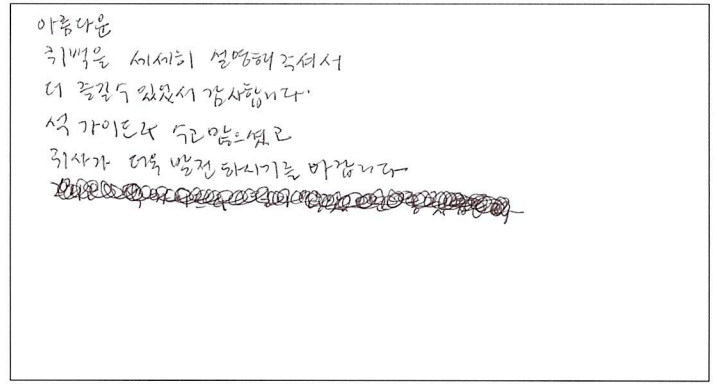 아름다운
퀴벡을 세세히 설명해 주셔서
더 즐길수 있었서 감사합니다.
석 가이드라 수고많으셨고
귀사가 더욱 발전 하시기를 바랍니다